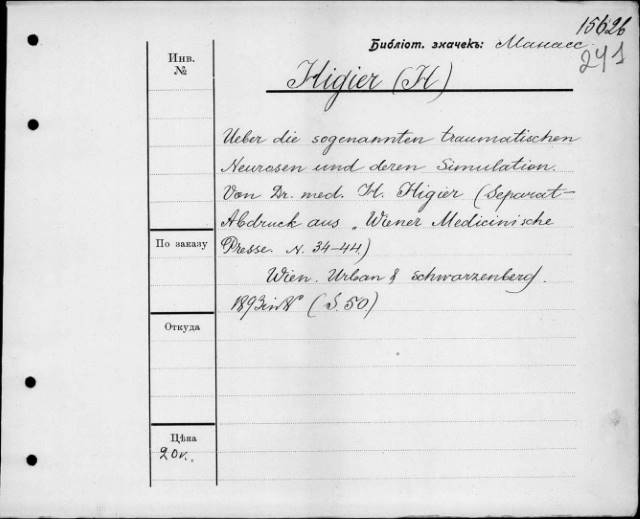 15626
Библіот. значекъ: Манасс.
241
Инв. №
Higier (H)
Ueber die sogenannten traumatischen
Neurosen und deren Simulation.
Von Dr. med. H. Higier (Separat-
Abdruck aus „Wiener Medicinische
По заказу
Presse. N. 34-44.)
Wien. Urban & Schwarzenberg.
1893 in 8° (S. 50.)
Откуда
Цѣна
20к.